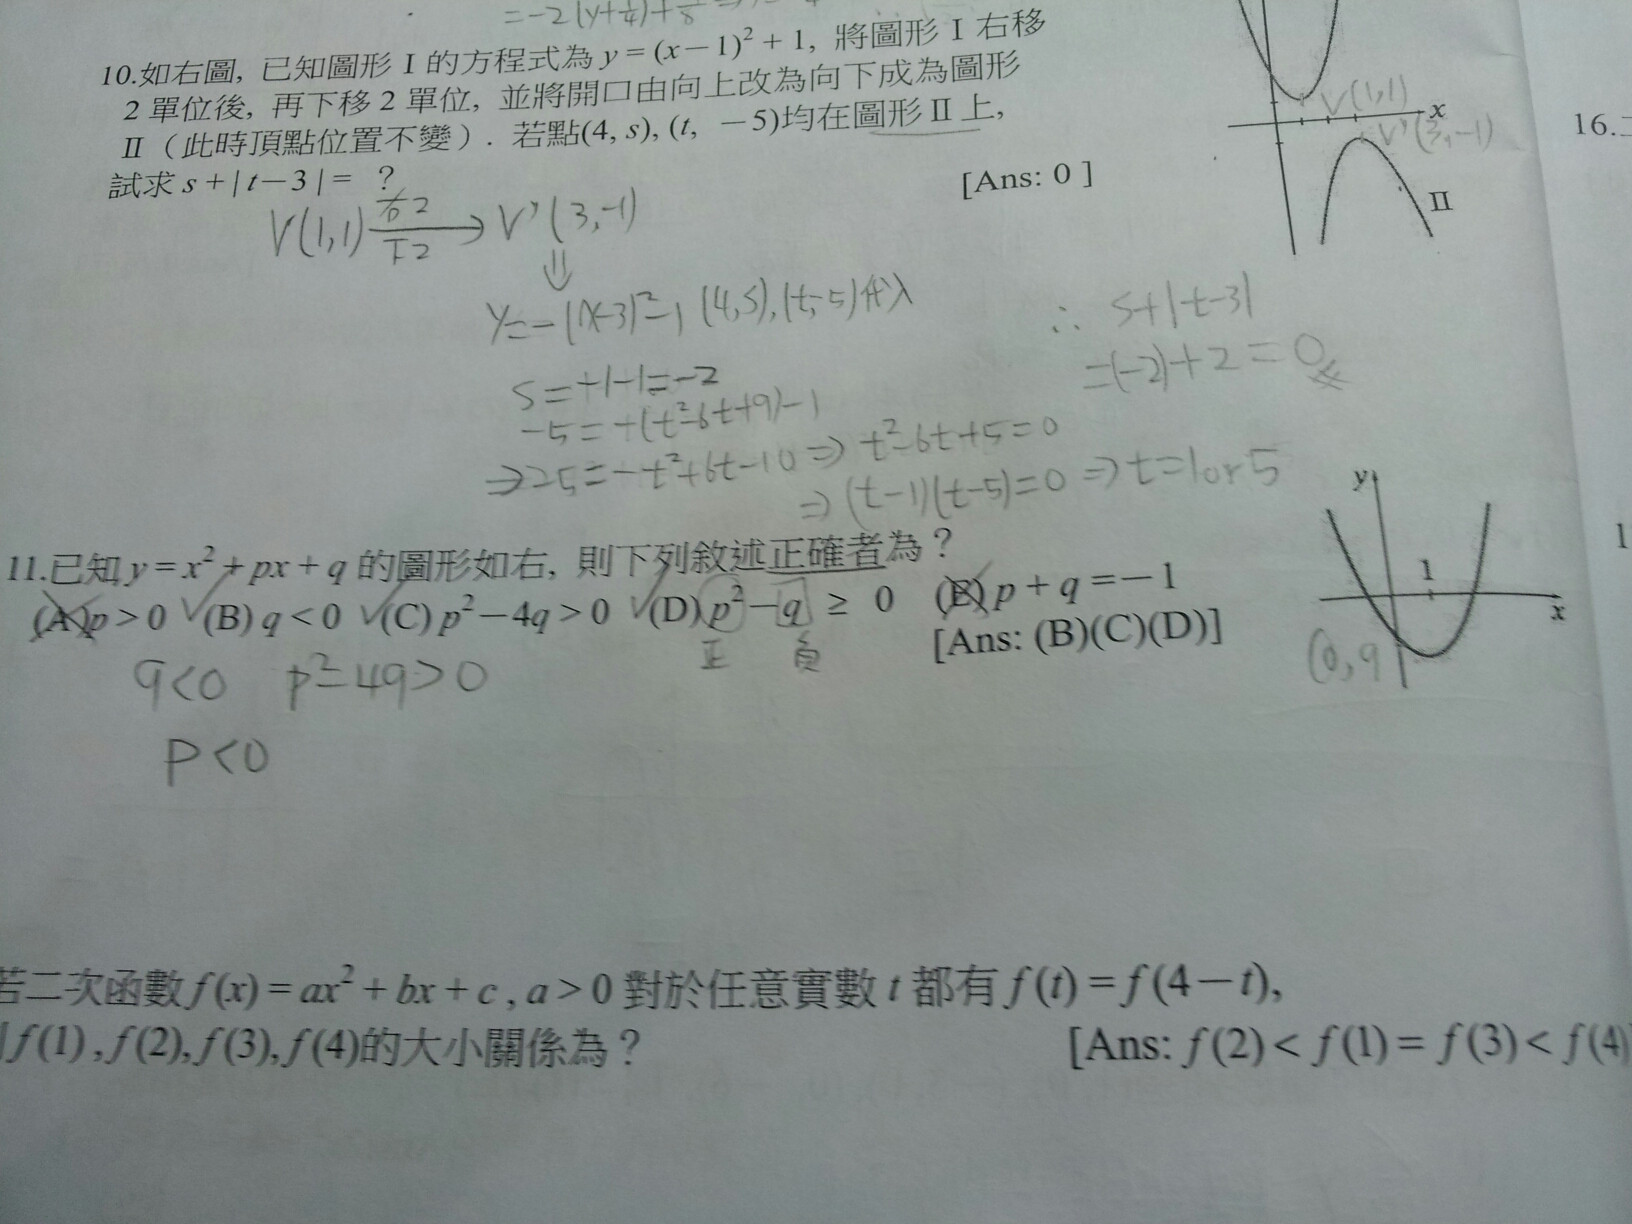 =-2(y+¼)+
10.如右圖, 已知圖形 I 的方程式為 y = (x－1)² + 1, 將圖形 I 右移
2 單位後, 再下移 2 單位, 並將開口由向上改為向下成為圖形
II（此時頂點位置不變）. 若點(4, s), (t, －5)均在圖形 II 上,
試求 s +| t－3 | = ?
[Ans: 0 ]
V(1,1)
x
V'(3,-1)
II
16.
V(1,1) 右2 下2 → V'(3,-1)
⇓
y=-(x-3)²-1 (4,s),(t,-5)代入
s=+1-1=-2
-5=+(t²-6t+9)-1
⇒25=-t²+6t-10⇒ t²-6t+5=0
⇒ (t-1)(t-5)=0 ⇒t=1or5
∴ s+|t-3|
=(-2)+2=0
11.已知 y = x² + px + q 的圖形如右, 則下列敘述正確者為？
(A) p > 0 ✓(B) q < 0 ✓(C) p²－4q > 0 ✓(D) p²－q ≥ 0 (E) p + q =－1
正 負
[Ans: (B)(C)(D)]
q<0 p²-4q>0
p<0
y
1
x
(0,q)
1
若二次函數 f (x) = ax² + bx + c , a > 0 對於任意實數 t 都有 f (t) = f (4－t),
f (1) , f (2), f (3), f (4)的大小關係為？
[Ans: f (2) < f (1) = f (3) < f (4)